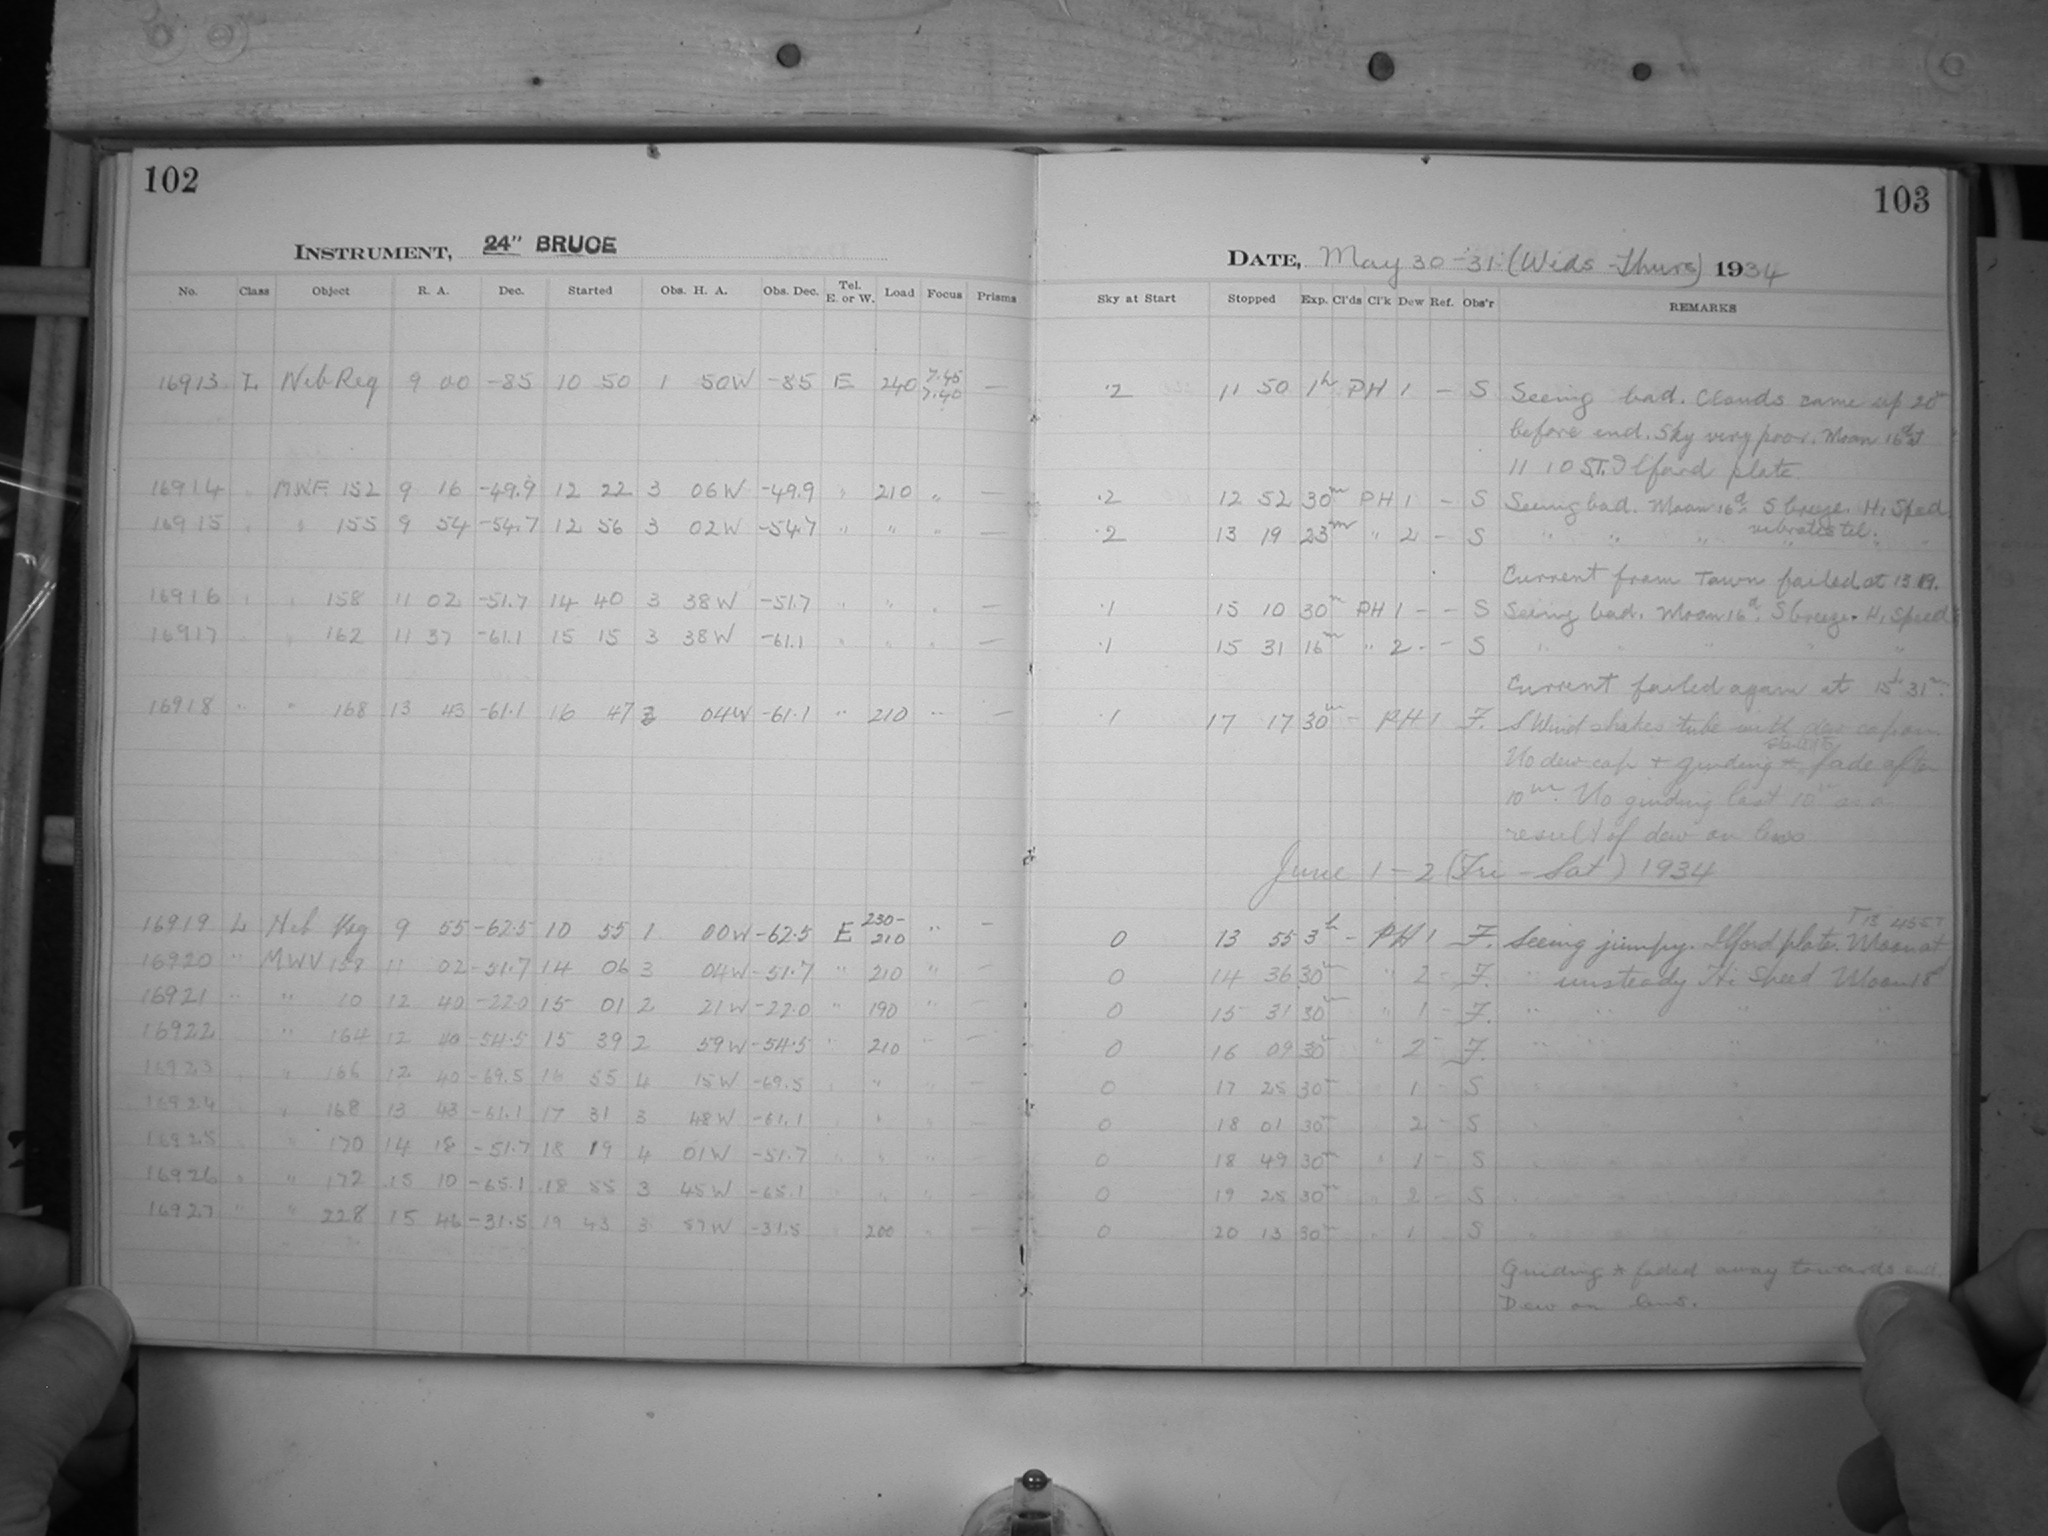 102
INSTRUMENT, 24" BRUCE
No. Class Object R. A. Dec. Started Obs. H. A. Obs. Dec. Tel. E. or W. Load Focus Prisms
16913 L Neb Reg 9 00 -85 10 50 1 50W -85 E 240 7.45 7.40 —
16914 " MWF 152 9 16 -49.9 12 22 3 06W -49.9 " 210 " —
16915 " " 155 9 54 -54.7 12 56 3 02W -54.7 " " " —
16916 " " 158 11 02 -51.7 14 40 3 38W -51.7 " " " —
16917 " " 162 11 37 -61.1 15 15 3 38W -61.1 " " " —
16918 " " 168 13 43 -61.1 16 47 3 04W -61.1 " 210 " —
16919 L Neb Reg 9 55 -62.5 10 55 1 00W -62.5 E 230-210 " —
16920 " MWV 158 11 02 -51.7 14 06 3 04W -51.7 " 210 " —
16921 " " 10 12 40 -22.0 15 01 2 21W -22.0 " 190 " —
16922 " 164 12 40 -54.5 15 39 2 59W -54.5 " 210 " —
16923 " " 166 12 40 -69.5 16 55 4 15W -69.5 " " " —
16924 " " 168 13 43 -61.1 17 31 3 48W -61.1 " "
16925 " " 170 14 18 -51.7 18 19 4 01W -51.7 " " " —
16926 " " 172 15 10 -65.1 18 55 3 45W -65.1 " " " —
16927 " " 228 15 46 -31.5 19 43 3 57W -31.5 200 " —
103
DATE, May 30-31 (Weds-Thurs) 1934
Sky at Start Stopped Exp. Cl'ds Cl'k Dew Ref. Obs'r REMARKS
.2 11 50 1h PH 1 - S Seeing bad. Clouds came up 20m
before end. Sky very poor. Moon 16d at
11 10 ST. Ilford plate
.2 12 52 30m PH 1 - S Seeing bad. Moon 16d. S breeze. Hi Speed
vibrates tel.
.2 13 19 23m " 2 - S " " " " "
Current from Town failed at 13 19.
.1 15 10 30m PH 1 - - S Seeing bad. Moon 16d. S breeze. Hi Speed
.1 15 31 16m " 2 - - S " " " " "
Current failed again at 15h 31m.
.1 17 17 30m - PH 1 F. S Wind shakes tube with dew cap on.
No dew cap + guiding * fade after
10m. No guiding last 10m as a
result of dew on lens
June 1-2 (Fri-Sat) 1934
0 13 55 3h - PH 1 F. Seeing jumpy. Ilford plate. Moon at
13 45 ST
0 14 36 30m " 2 - F. " unsteady Hi Speed Moon 18d
0 15 31 30m " 1 - F. " " " "
0 16 09 30m " 2 - F. " " " "
0 17 25 30m 1 - S
0 18 01 30m 2 - S
0 18 49 30m " 1 - S
0 19 25 30m " 2 - S
0 20 13 30m " 1 - S
Guiding * faded away towards end.
Dew on lens.